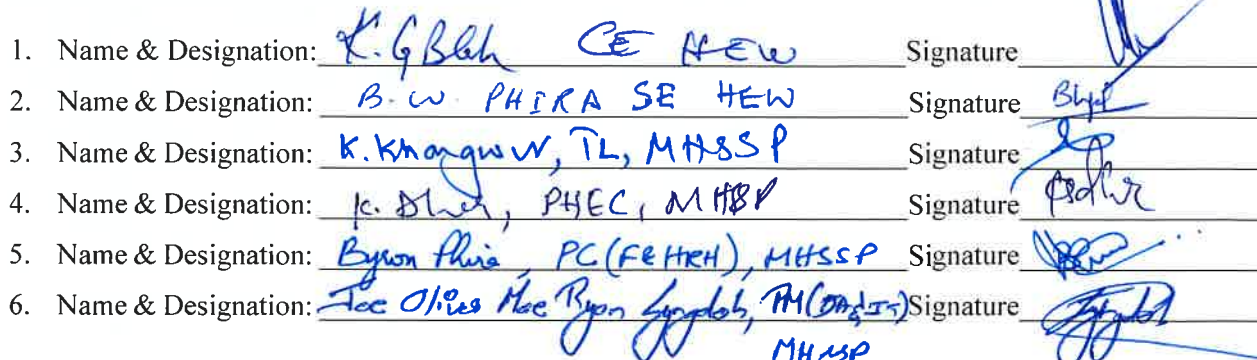 1. Name & Designation: K. G Blah CE HEW Signature
2. Name & Designation: B. W. PHIRA SE HEW Signature
3. Name & Designation: K. Khongwir, TL, MHSSP Signature
4. Name & Designation: K. PHEC, MHSSP Signature
5. Name & Designation: Byron Phira, PC (FE HRH), MHSSP Signature
6. Name & Designation: Joe Olives Mae Ryon Lyngdoh, Signature
MHSSP